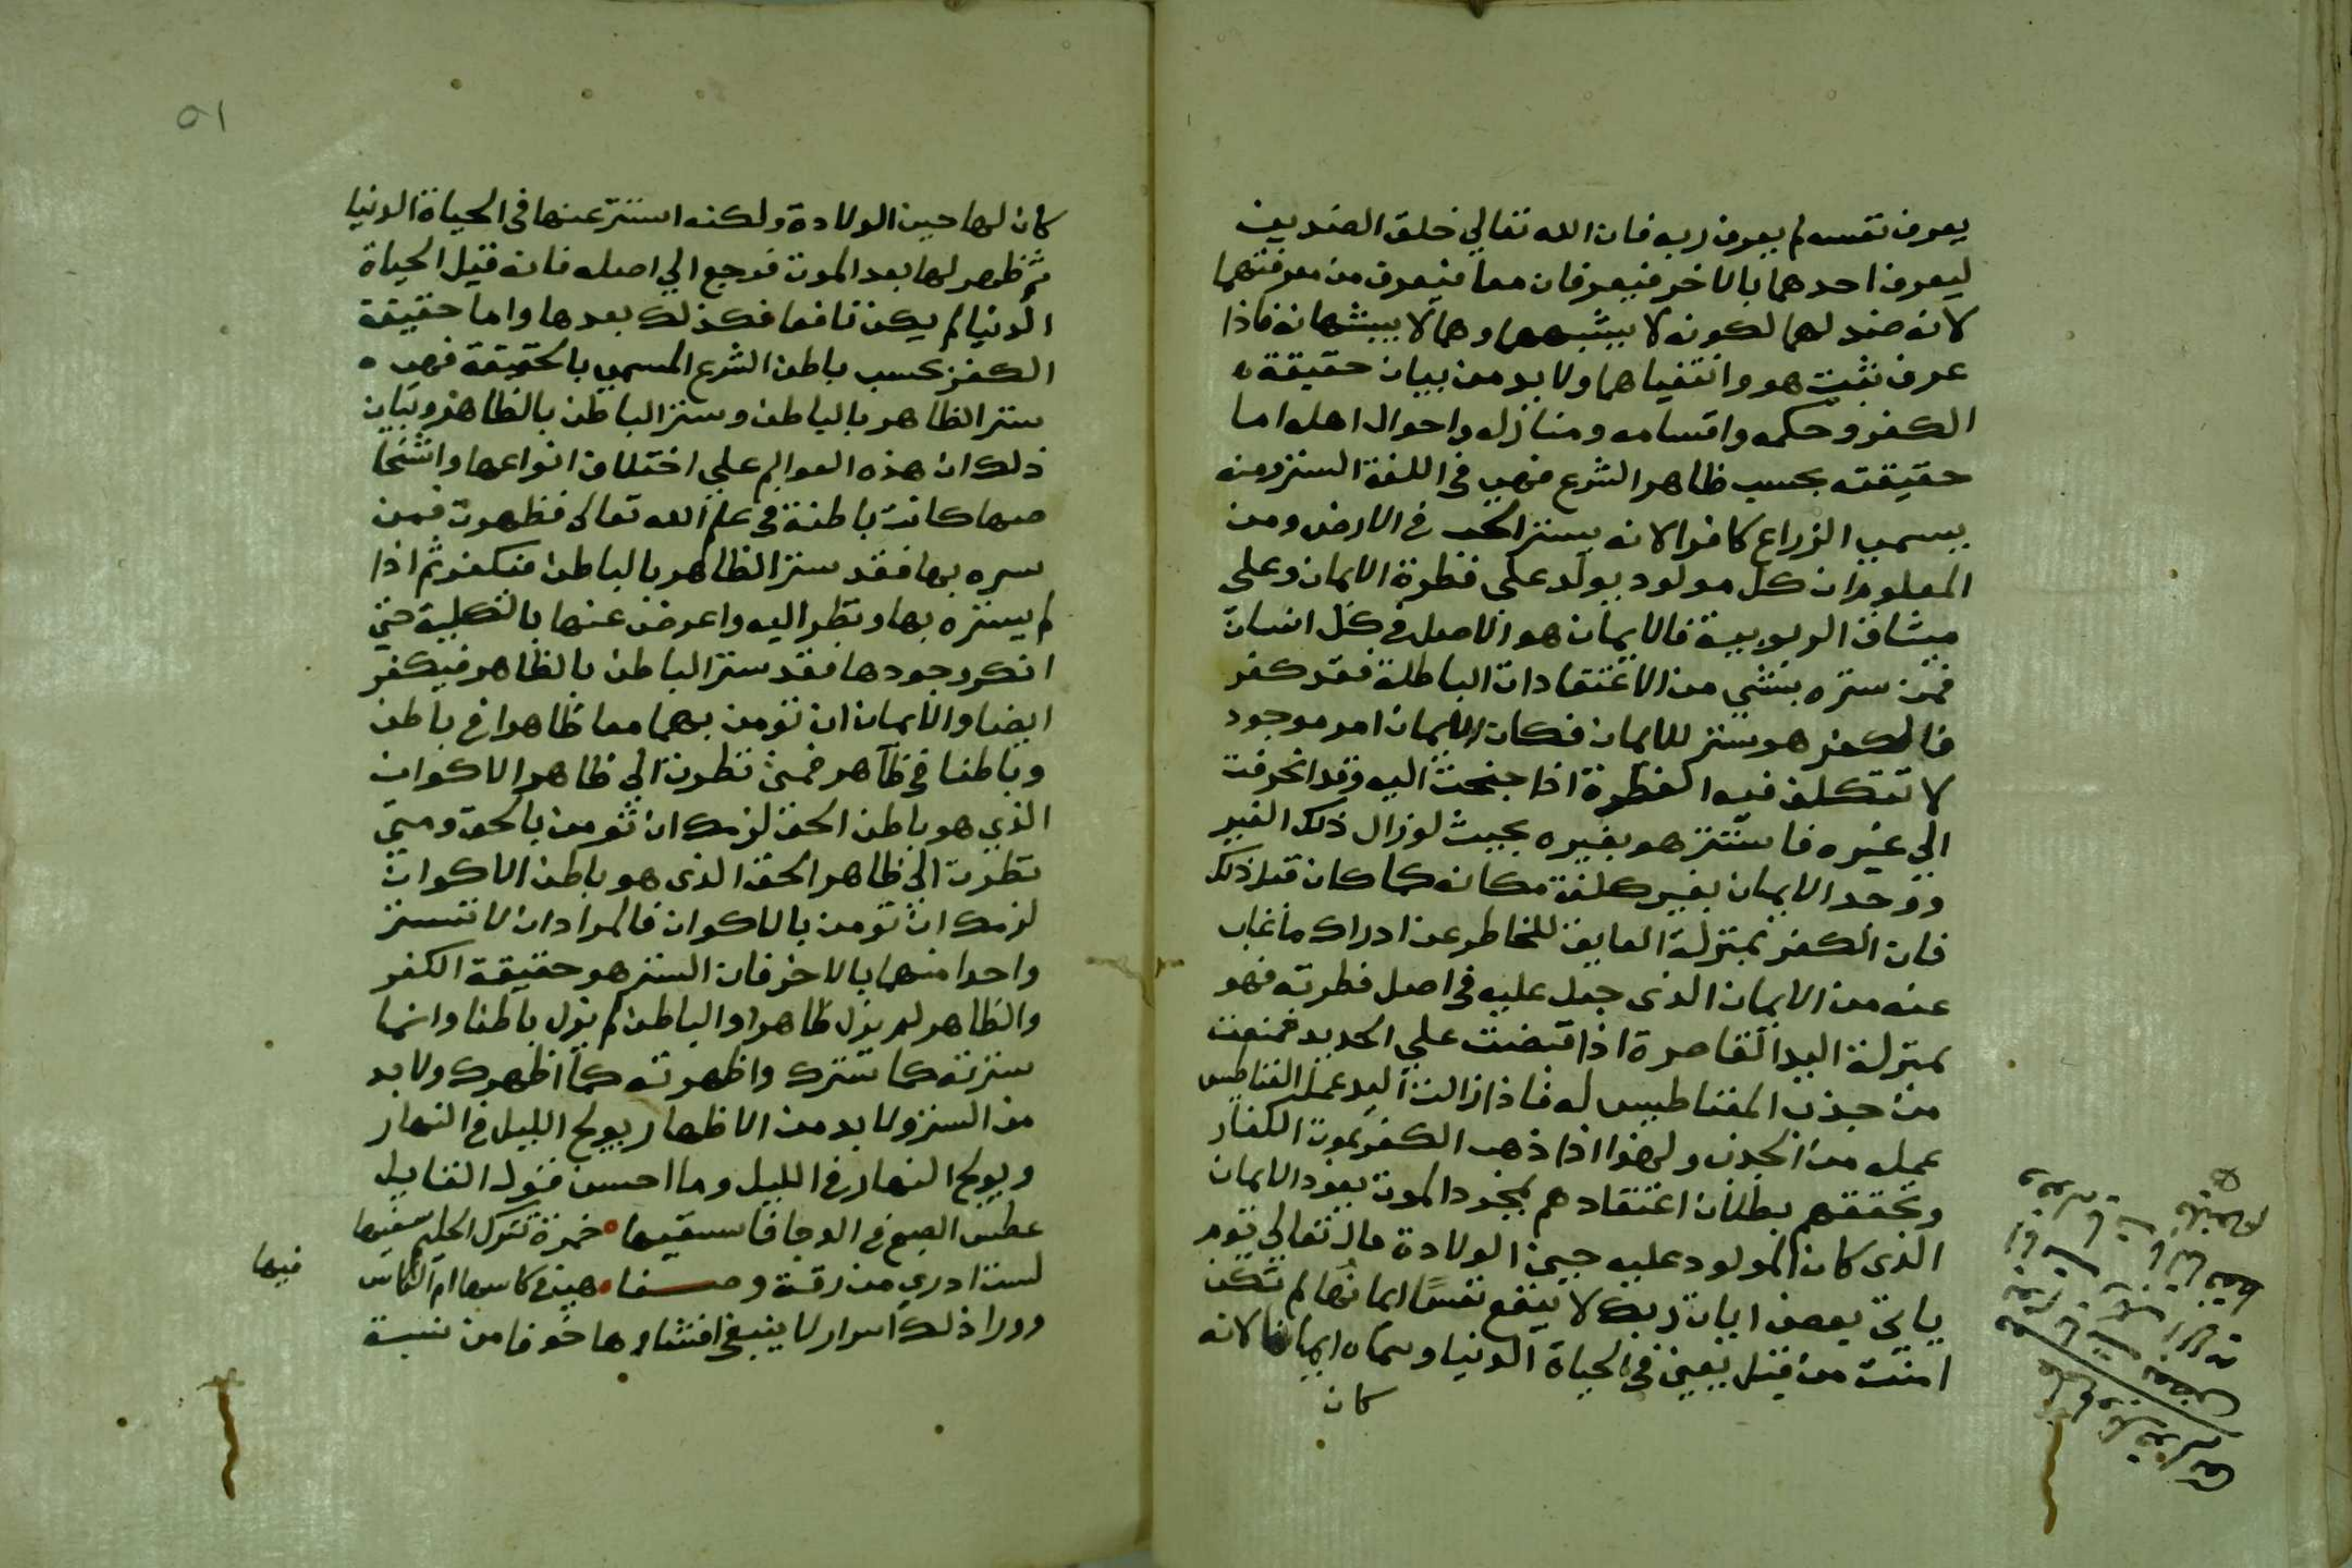 يعرف نفسه لم يعرف ربه فان الله تعالي خلق الضدين
ليعرف احدهما بالاخر فيعرفان معا فيعرف من معرفتهما
لانه ضد لهما لكونه لا يشبههما وهما لا يشبهانه فاذا
عرف ثبت هو وانتفيا هما ولا بد من بيان حقيقة
الكفر وحكمه واقسامه ومنازله واحوال اهله اما
حقيقته بحسب ظاهر الشرع فهي في اللغة الستر ومنه
يسمي الزراع كافرا لانه يستر الحب في الارض ومن
المعلوم ان كل مولود يولد علي فطرة الايمان وعلي
ميثاق الربوبية فالايمان هو الاصل في كل انسان
فمن ستره بشي من الاعتقادات الباطلة فقد كفر
فالكفر هو ستر للايمان فكان الايمان امر موجود
لا تتكلف فيه الفطرة اذا جنحت اليه وقد انحرفت
الي غيره فاستتر هو بغيره بحيث لو زال ذلك الغير
ووجد الايمان بغير كلفة مكانه كما كان قبل ذلك
فان الكفر بمنزلة العايق للخاطر عن ادراك ما غاب
عنه من الايمان الذي جبل عليه في اصل فطرته فهو
بمنزلة اليد القاصرة اذا قبضت علي الحديد فمنعت
من جذب المغناطيس له فاذا زالت اليد عمل المغناطيس
عمله من الجذب ولهذا اذا ذهب الكفر بموت الكفار
وتحققهم بطلان اعتقادهم بمجرد الموت يعود الايمان
الذي كان المولود عليه حين الولادة قال تعالي يوم
ياتي بعض ايات ربك لا ينفع نفسًا ايمانها لم تكن
امنت من قبل يعني في الحياة الدنيا وسماه ايمانا لانه
كان
٥١
كان لها حين الولادة ولكنه استتر عنها في الحياة الدنيا
ثم ظهر لها بعد الموت فرجع الي اصله فانه قبل الحياة
الدنيا لم يكن نافعا فكذلك بعدها واما حقيقة
الكفر بحسب باطن الشرع المسمي بالحقيقة فهي
ستر الظاهر بالباطن وستر الباطن بالظاهر وبيان
ذلك ان هذه العوالم علي اختلاف انواعها واشخا
صها كانت باطنة في علم الله تعالي فظهرت فمن
ستره بها فقد ستر الظاهر بالباطن فيكفر ثم اذا
لم يستره بها ونظر اليه واعرض عنها بالكلية حتي
انكر وجودها فقد ستر الباطن بالظاهر فيكفر
ايضا والايمان ان تومن بهما معا ظاهرا في باطن
وباطنا في ظاهر فمتي نظرت الي ظاهر الاكوان
الذي هو باطن الحق لزمك ان تومن بالحق ومتي
نظرت الي ظاهر الحق الذي هو باطن الاكوان
لزمك ان تومن بالاكوان فالمراد ان لا تستر
واحدا منهما بالاخر فان الستر هو حقيقة الكفر
والظاهر لم يزل ظاهرا والباطن لم يزل باطنا وانما
سترته كما سترك واظهرته كما اظهرك ولا بد
من الستر ولا بد من الاظهار يولج الليل في النهار
ويولج النهار في الليل وما احسن قول القايل
عطس الصبح في الدجا فاسقنيها خمرة تترك الحليم سفيها
لست ادري من رقة وصفا هي في كاسها ام الكاس
فيها
وورا ذلك اسرار لا ينبغي افشاوها خوفا من نسبة